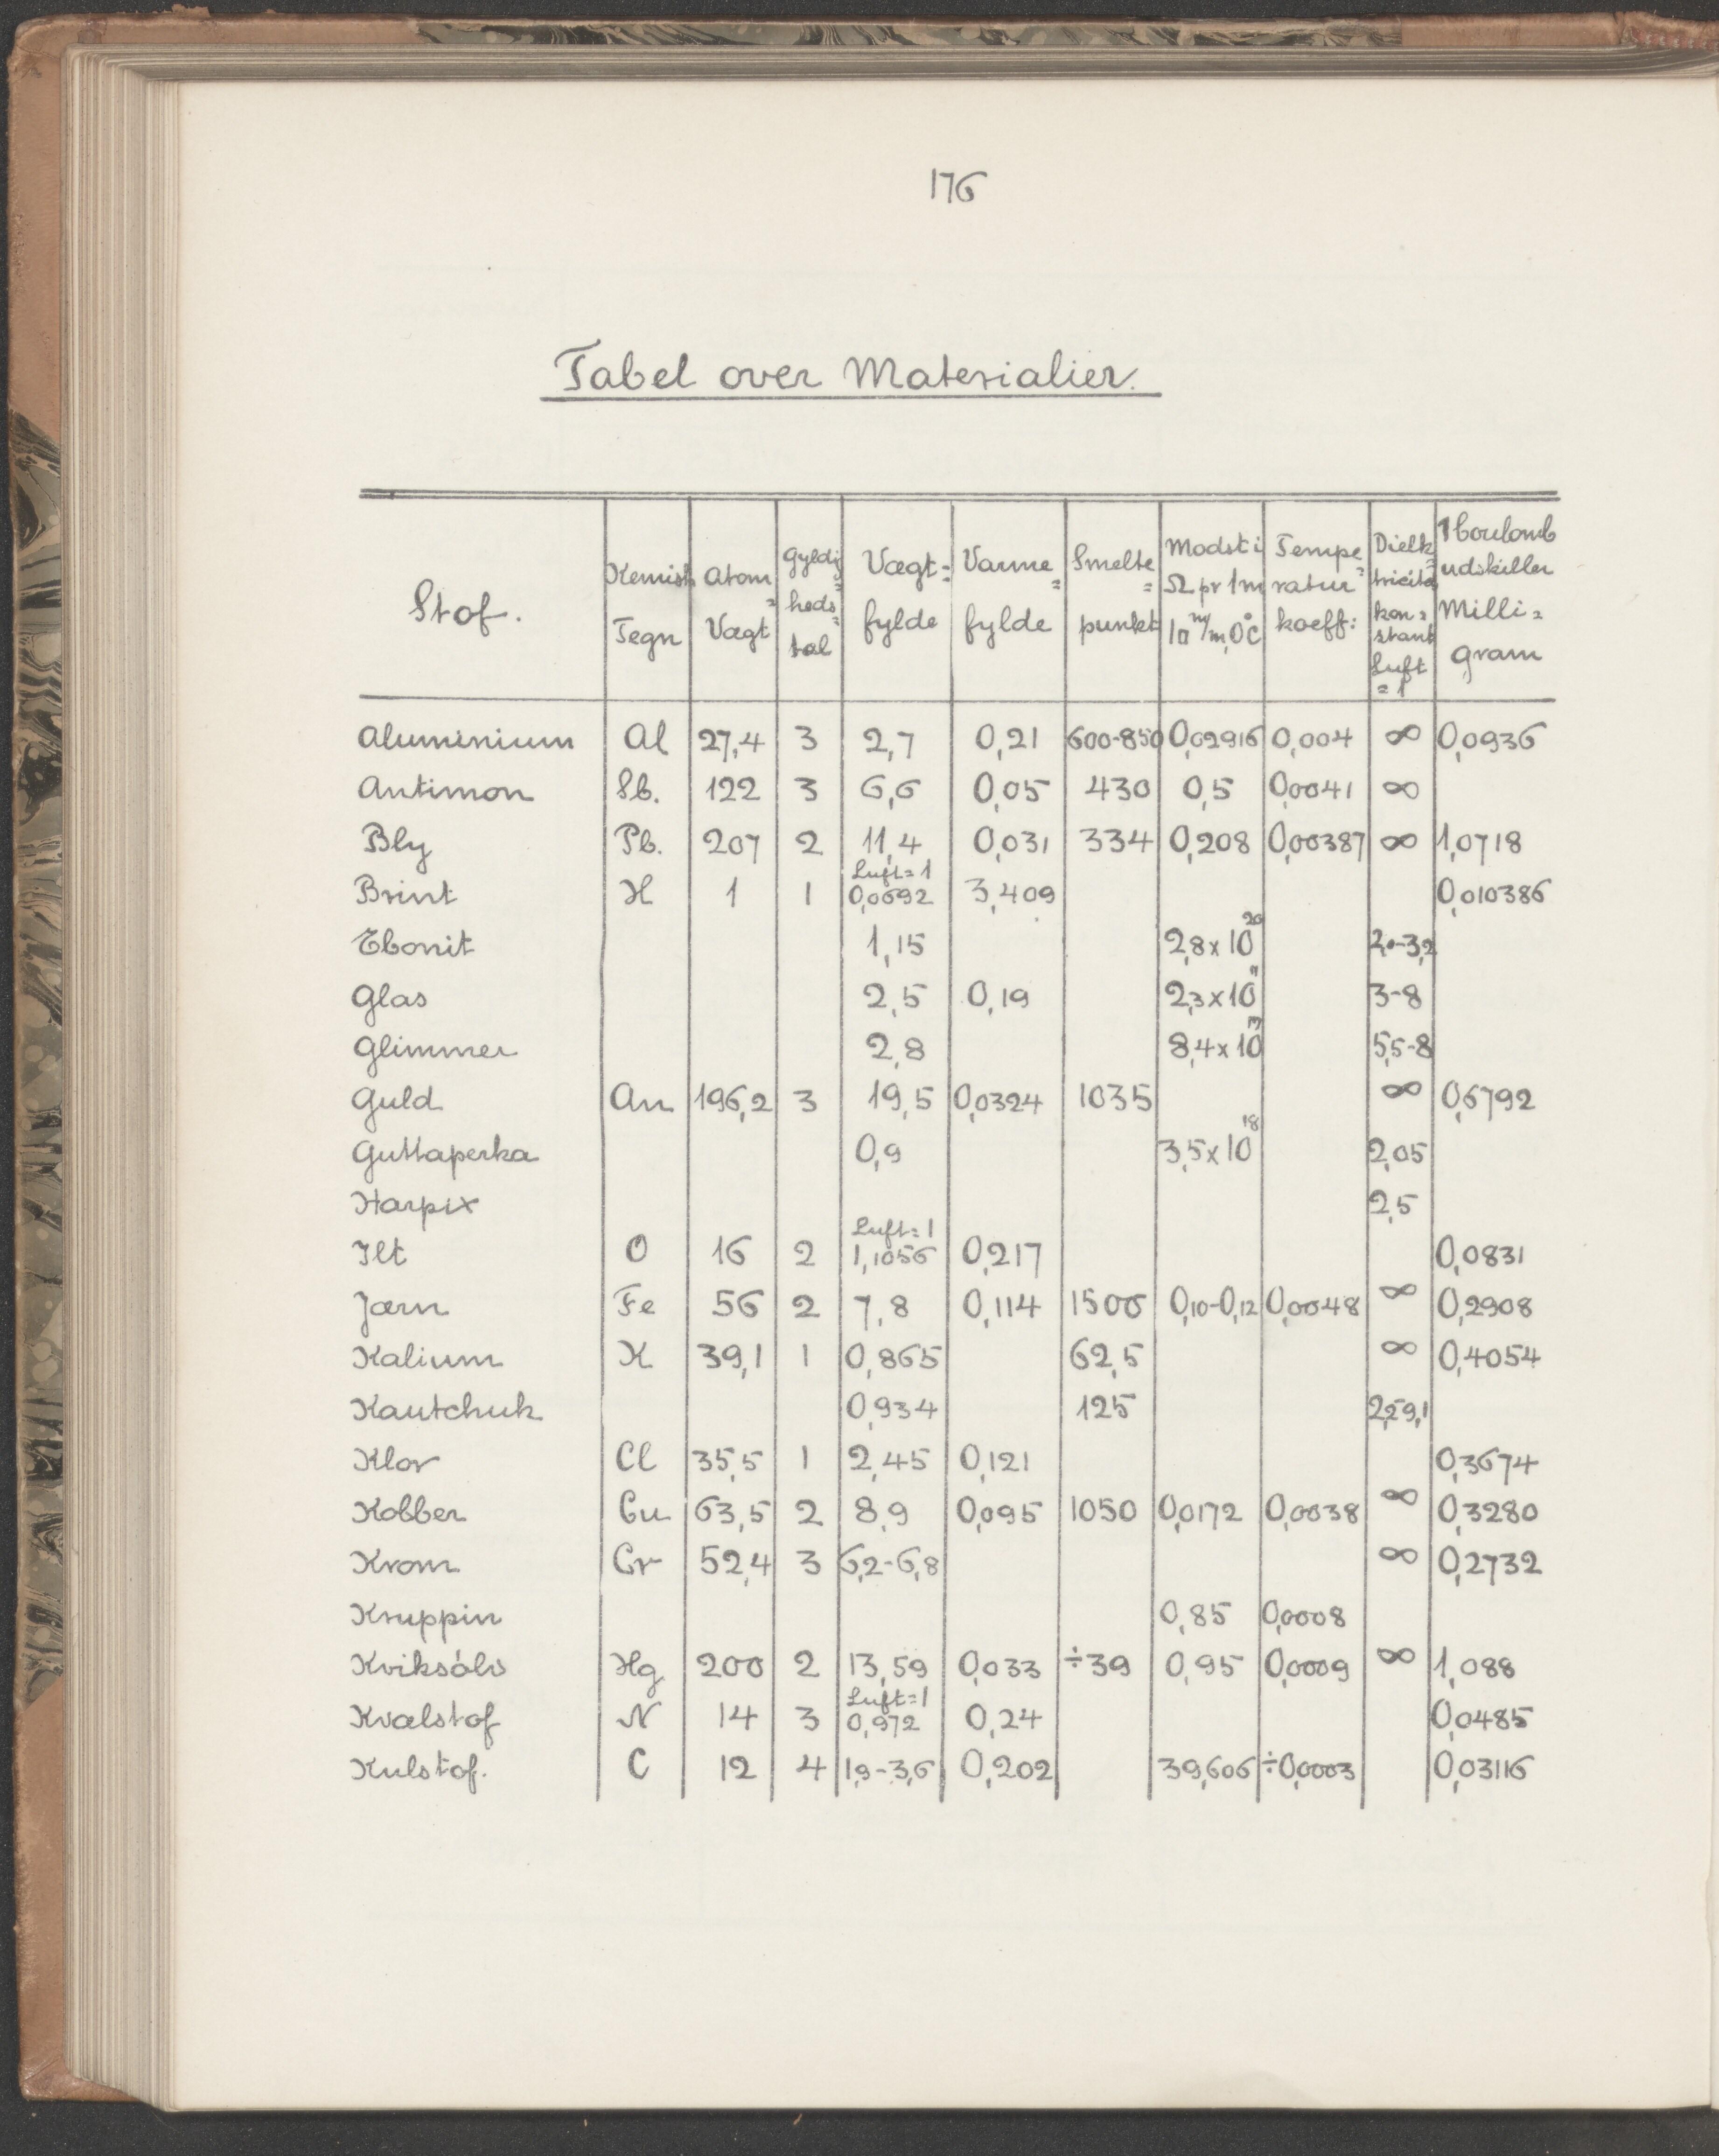 176
Tabel over Materialier.
Stof. Kemisk Tegn Atom= Vægt Gyldig= heds= tal Vægt= fylde Varme= fylde Smelte= punkt Modst i Ω pr 1m 1□ m/m, 0°C Tempe= ratur koeff: Dielek= tricitets kon= stant Luft = 1 1 Coulomb udskiller Milli= gram
Aluminium Al 27,4 3 2,7 0,21 600-850 0,02916 0,004 ∞ 0,0936
Antimon Sb. 122 3 6,6 0,05 430 0,5 0,0041 ∞
Bly Pb. 207 2 11,4 0,031 334 0,208 0,00387 ∞ 1,0718
Brint H 1 1 Luft=1 0,0692 3,409 0,010386
Ebonit 1,15 2,8 x 10²⁰ 2,0-3,2
Glas 2,5 0,19 2,3 x 10¹¹ 3-8
Glimmer 2,8 8,4 x 10¹³ 5,5-8
Guld Au 196,2 3 19,5 0,0324 1035 ∞ 0,6792
Guttaperka 0,9 3,5 x 10¹⁸ 2,05
Harpix 2,5
Ilt O 16 2 Luft=1 1,1056 0,217 0,0831
Jærn Fe 56 2 7,8 0,114 1500 0,10-0,12 0,0048 ∞ 0,2908
Kalium K 39,1 1 0,865 62,5 ∞ 0,4054
Kautchuk 0,934 125
Klor Cl 35,5 1 2,45 0,121 0,3674
Kobber Cu 63,5 2 8,9 0,095 1050 0,0172 0,0038 ∞ 0,3280
Krom Cr 52,4 3 6,2-6,8 ∞ 0,2732
Kruppin 0,85 0,0008
Kviksólv Hg 200 2 13,59 0,033 ÷39 0,95 0,0009 ∞ 1,088
Kvælstof N 14 3 Luft=1 0,972 0,24 0,0485
Kulstof. C 12 4 1,9-3,6 0,202 39,606 ÷0,0003 0,03116